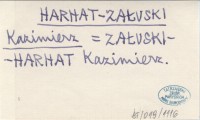 HARHAT-ZAŁUSKI
Kazimierz = ZAŁUSKI-
-HARHAT Kazimierz.